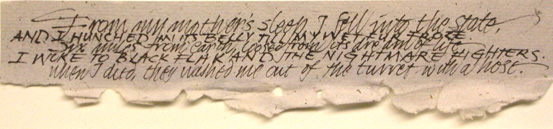 From my mother's sleep I fell into the state,
AND I HUNCHED IN ITS BELLY TILL MY WET FUR FROZE.
Six miles from earth, loosed from its dream of life,
I WOKE TO BLACK FLAK AND THE NIGHTMARE FIGHTERS.
When I died they washed me out of the turret with a hose.